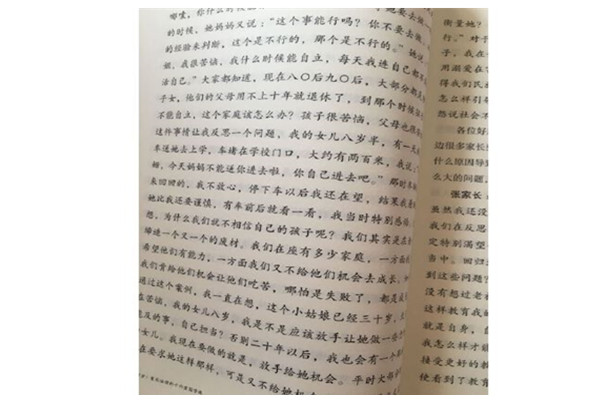 哪哇，你什么时候
的时候，她妈妈又说：“这个事能行吗？你不要去做
的经验来判断，这个是不行的，那个是不行的。”她说
姐，我很苦恼，我什么时候能自立，每天我连自己都不
活自己。”大家都知道，现在八〇后九〇后，大部分都是
子女，他们的父母用不上十年就退休了，到那个时候
不能自立，这个家庭该怎么办？孩子很苦恼，父母也很
这件事情让我反思一个问题，我的女儿八岁半，有一天
车送她去上学，车堵在学校门口，大约有两百米，我说：“
，今天妈妈不能送你进去啦，你自己进去吧。”那时
来回回的，我不放心，停下车以后我还在望，结果我
她比我还要谨慎，有车前后就看一看，我当时特别感
想，为什么我们就不相信自己的孩子呢？我们其实是在
缔造一个又一个的废材。我们在座有多少家庭，一方面
希望他们有能力，一方面我们又不给他们机会去成长。
我们肯给他们机会让他们吃苦，哪怕是失败了，都是
通过这个案例，我一直在想，这个小姑娘已经三十岁，
苦恼，我的女儿八岁，我是不是应该放手让她做一些
及的事，自己担当？否则二十年以后，我也会有一个
女儿。我现在要做的就是，放手给她机会。平时大
在要求她这样那样，可是又不给她机
衡量她？”
行。对于
子，我在
用溺爱在
得我们民
怎么样引导
想说社会不
各位好
边很多家长
什么原因导
么大的问题，
张家长
虽然我还没
我们在反思
定特别满望
当中。回归
到这些问题？
没有想过老
这样教育我
就是自身，
我怎么样才能
接受更好的教
使看到了教育